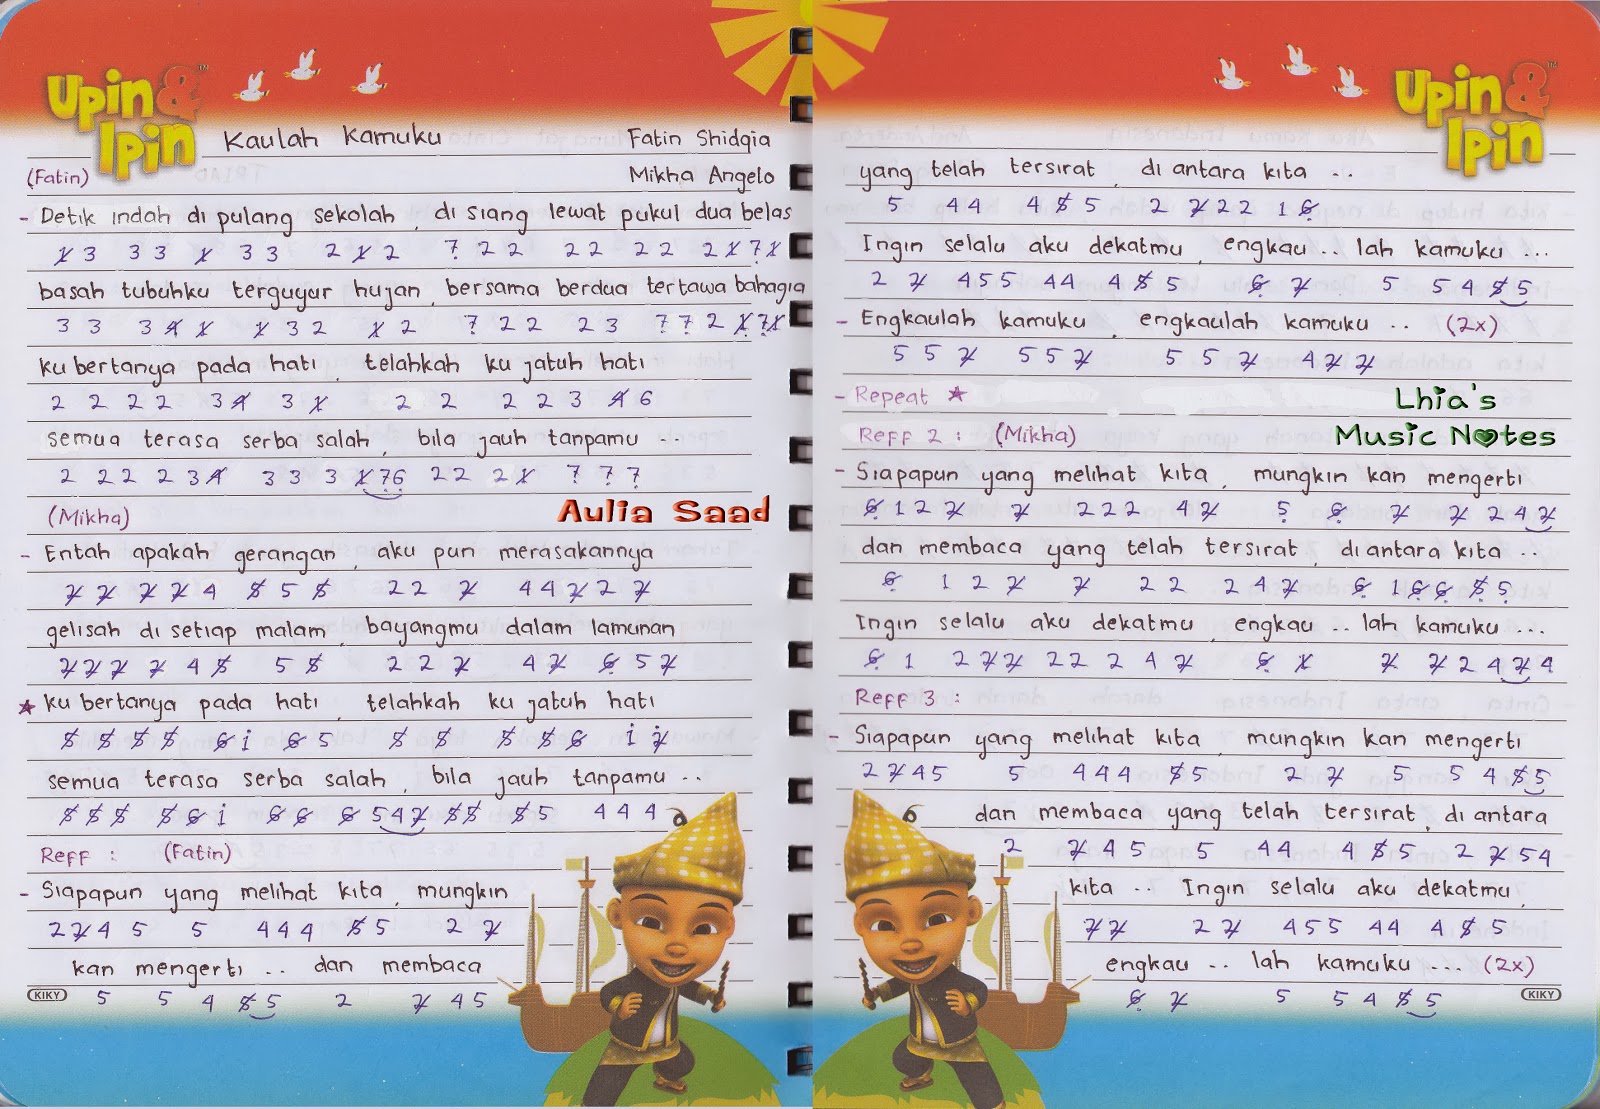 Upin & Ipin™
Kaulah Kamuku Fatin Shidqia
(Fatin) Mikha Angelo
- Detik indah di pulang sekolah, di siang lewat pukul dua belas
1̸ 3 3 3 1̸ 3 3 2 1̸ 2 7̣ 2 2 2 2 2 2 2 1̸ 7̣ 1̸
basah tubuhku terguyur hujan, bersama berdua tertawa bahagia
3 3 3 4̸ 1̸ 1̸ 3 2 1̸ 2 7̣ 2 2 2 3 7̣ 7̣ 2 1̸ 7̣ 1̸
ku bertanya pada hati, telahkah ku jatuh hati
2 2 2 2 3 4̸ 3 1̸ 2 2 2 2 3 4̸ 6
semua terasa serba salah, bila jauh tanpamu ..
2 2 2 2 3 4̸ 3 3 3 1̸ 7̣ 6̣ 2 2 2 1̸ 7̣ 7̣ 7̣
(Mikha) Aulia Saad
- Entah apakah gerangan, aku pun merasakannya
2̸ 2̸ 2̸ 2̸ 4 5̸ 5 5̸ 2 2 2̸ 4 4 2̸ 2 2̸
gelisah di setiap malam, bayangmu dalam lamunan
2̸ 2̸ 2̸ 2̸ 4 5̸ 5 5̸ 2 2 2̸ 4 2̸ 6̸̣ 5 2̸
★ ku bertanya pada hati, telahkah ku jatuh hati
5̸ 5̸ 5̸ 5̸ 6̸ 1̇ 6̸ 5 5̸ 5̸ 5̸ 5̸ 6̸ 1̇ 2̸̇
semua terasa serba salah, bila jauh tanpamu ..
5̸ 5̸ 5̸ 5̸ 6̸ 1̇ 6̸ 6̸ 6̸ 5 4 2̸ 5̸ 5̸ 5̸ 5 4 4 4
Reff : (Fatin)
- Siapapun yang melihat kita, mungkin
2 2̸ 4 5 5 4 4 4 5̸ 5 2 2̸
kan mengerti .. dan membaca
KIKY 5 5 4 5̸ 5 2 2̸ 4 5
Upin & Ipin™
yang telah tersirat, di antara kita ..
5 4 4 4 5̸ 5 2 2̸ 2 2 1 6̸̣
Ingin selalu aku dekatmu, engkau .. lah kamuku ...
2 2̸ 4 5 5 4 4 4 5̸ 5 6̸̣ 2̸ 5 5 4 5̸ 5
- Engkaulah kamuku, engkaulah kamuku .. (2x)
5 5 2̸ 5 5 2̸ 5 5 2̸ 4 2̸ 2̸
- Repeat ★ Lhia's
Reff 2 : (Mikha) Music Notes
- Siapapun yang melihat kita, mungkin kan mengerti
6̸̣ 1 2 2̸ 2̸ 2 2 2 4 2̸ 5̣ 6̸̣ 2̸ 2̸ 2 4 2̸
dan membaca yang telah tersirat, di antara kita ..
6̸̣ 1 2 2̸ 2̸ 2 2 2 4 2̸ 6̸̣ 1 6̸̣ 6̸̣ 5̸̣ 5̣
Ingin selalu aku dekatmu, engkau .. lah kamuku ...
6̸̣ 1 2 2̸ 2̸ 2 2 2 4 2̸ 6̸̣ 1̸ 2̸ 2̸ 2 4 2̸ 4
Reff 3 :
- Siapapun yang melihat kita, mungkin kan mengerti
2 2̸ 4 5 5 4 4 4 5̸ 5 2 2̸ 5 5 4 5̸ 5
dan membaca yang telah tersirat, di antara
2 2̸ 4 5 5 4 4 4 5̸ 5 2 2̸ 5 4
kita .. Ingin selalu aku dekatmu,
2̸ 2̸ 2 2̸ 4 5 5 4 4 4 5̸ 5
engkau .. lah kamuku ... (2x)
6̸̣ 2̸ 5 5 4 5̸ 5 KIKY